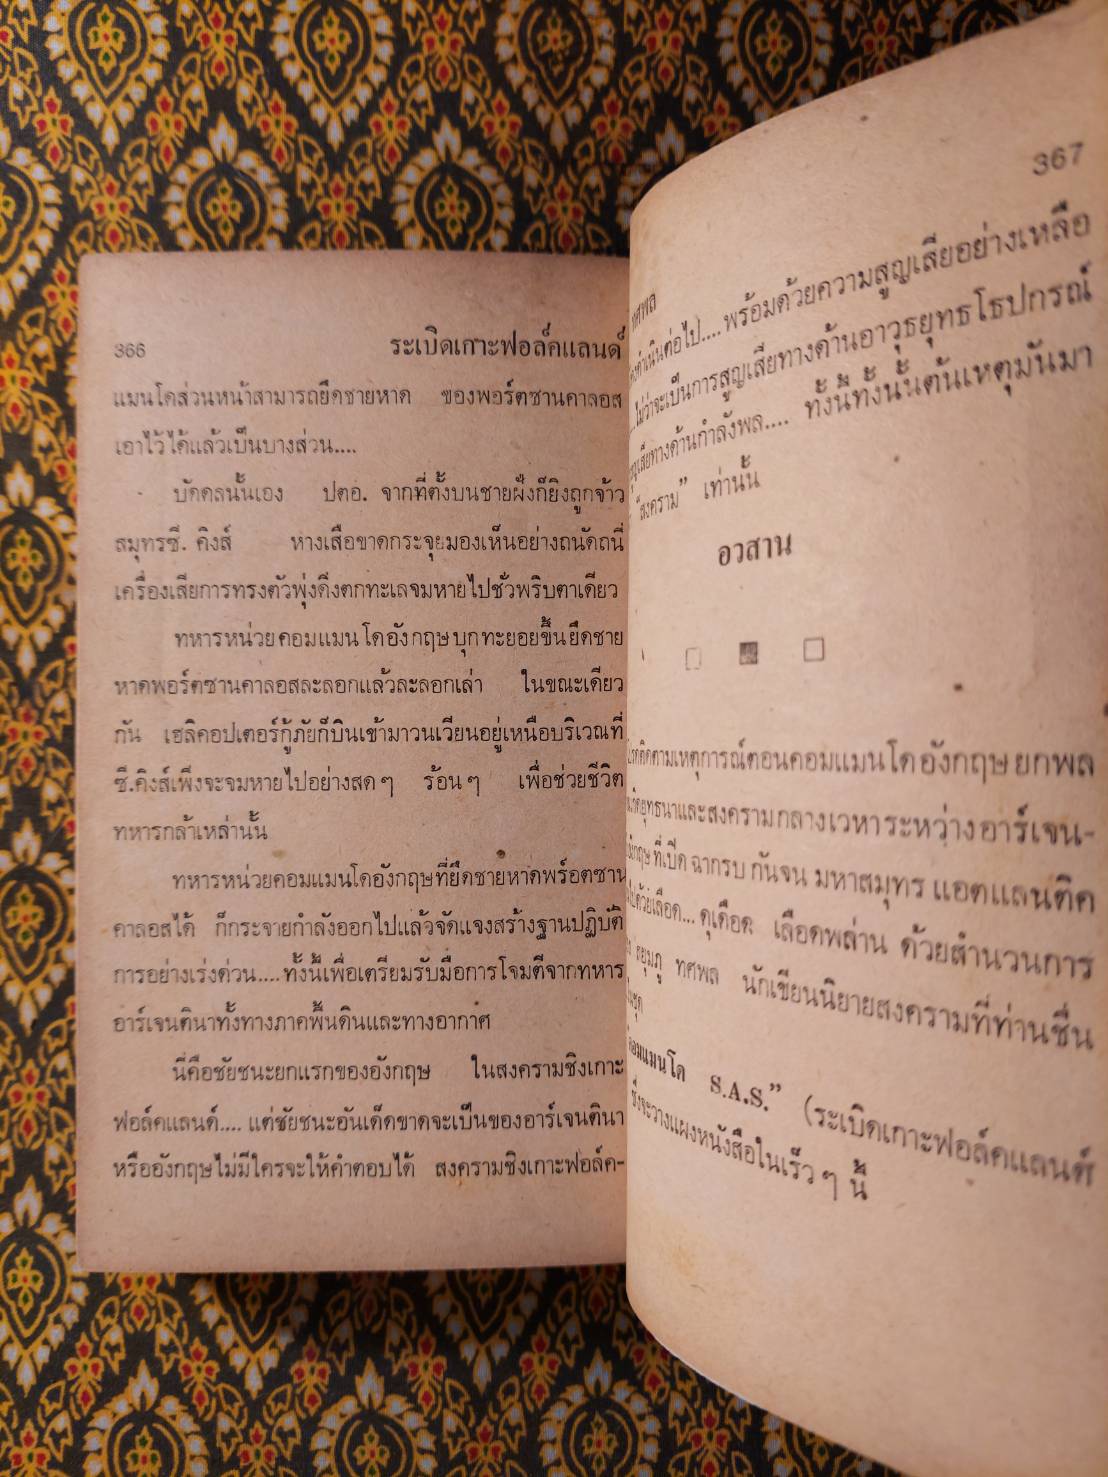 366
ระเบิดเกาะฟอล์คแลนด์
แมนโดส่วนหน้าสามารถยึดชายหาด ของพอร์ตซานคาลอส
เอาไว้ได้แล้วเป็นบางส่วน....
บัดดลนั้นเอง ปตอ. จากที่ตั้งบนชายฝั่งก็ยิงถูกจ้าว
สมุทรซี. คิงส์ หางเสือขาดกระจุยมองเห็นอย่างถนัดถนี่
เครื่องเสียการทรงตัวพุ่งดิ่งตกทะเลจมหายไปชั่วพริบตาเดียว
ทหารหน่วยคอมแมนโดอังกฤษบุกทะยอยขึ้นยึดชาย
หาดพอร์ตซานคาลอสละลอกแล้วละลอกเล่า ในขณะเดียว
กัน เฮลิคอปเตอร์กู้ภัยก็บินเข้ามาวนเวียนอยู่เหนือบริเวณที่
ซี.คิงส์เพิ่งจะจมหายไปอย่างสดๆ ร้อนๆ เพื่อช่วยชีวิต
ทหารกล้าเหล่านั้น
ทหารหน่วยคอมแมนโดอังกฤษที่ยึดชายหาดพร์อตซาน
คาลอสได้ ก็กระจายกำลังออกไปแล้วจัดแจงสร้างฐานปฏิบัติ
การอย่างเร่งด่วน....ทั้งนี้เพื่อเตรียมรับมือการโจมตีจากทหาร
อาร์เจนตินาทั้งทางภาคพื้นดินและทางอากาศ
นี่คือชัยชนะยกแรกของอังกฤษ ในสงครามชิงเกาะ
ฟอล์คแลนด์.... แต่ชัยชนะอันเด็ดขาดจะเป็นของอาร์เจนตินา
หรืออังกฤษไม่มีใครจะให้คำตอบได้ สงครามชิงเกาะฟอล์ค-
367
ทศพล
ดำเนินต่อไป....พร้อมด้วยความสูญเสียอย่างเหลือ
...ไม่ว่าจะเป็นการสูญเสียทางด้านอาวุธยุทธโธปกรณ์
สูญเสียทางด้านกำลังพล.... ทั้งนี้ทั้งนั้นต้นเหตุมันมา
"สงคราม" เท่านั้น
อวสาน
ติดตามเหตุการณ์ตอนคอมแมนโดอังกฤษยกพล
และสงครามกลางเวหาระหว่างอาร์เจน-
ที่เปิดฉากรบกันจนมหาสมุทรแอตแลนติค
ไปด้วยเลือด... ดุเดือด เลือดพล่าน ด้วยสำนวนการ
ทศพล นักเขียนนิยายสงครามที่ท่านชื่น
คอมแมนโด S.A.S." (ระเบิดเกาะฟอล์คแลนด์
ซึ่งจะวางแผงหนังสือในเร็วๆ นี้